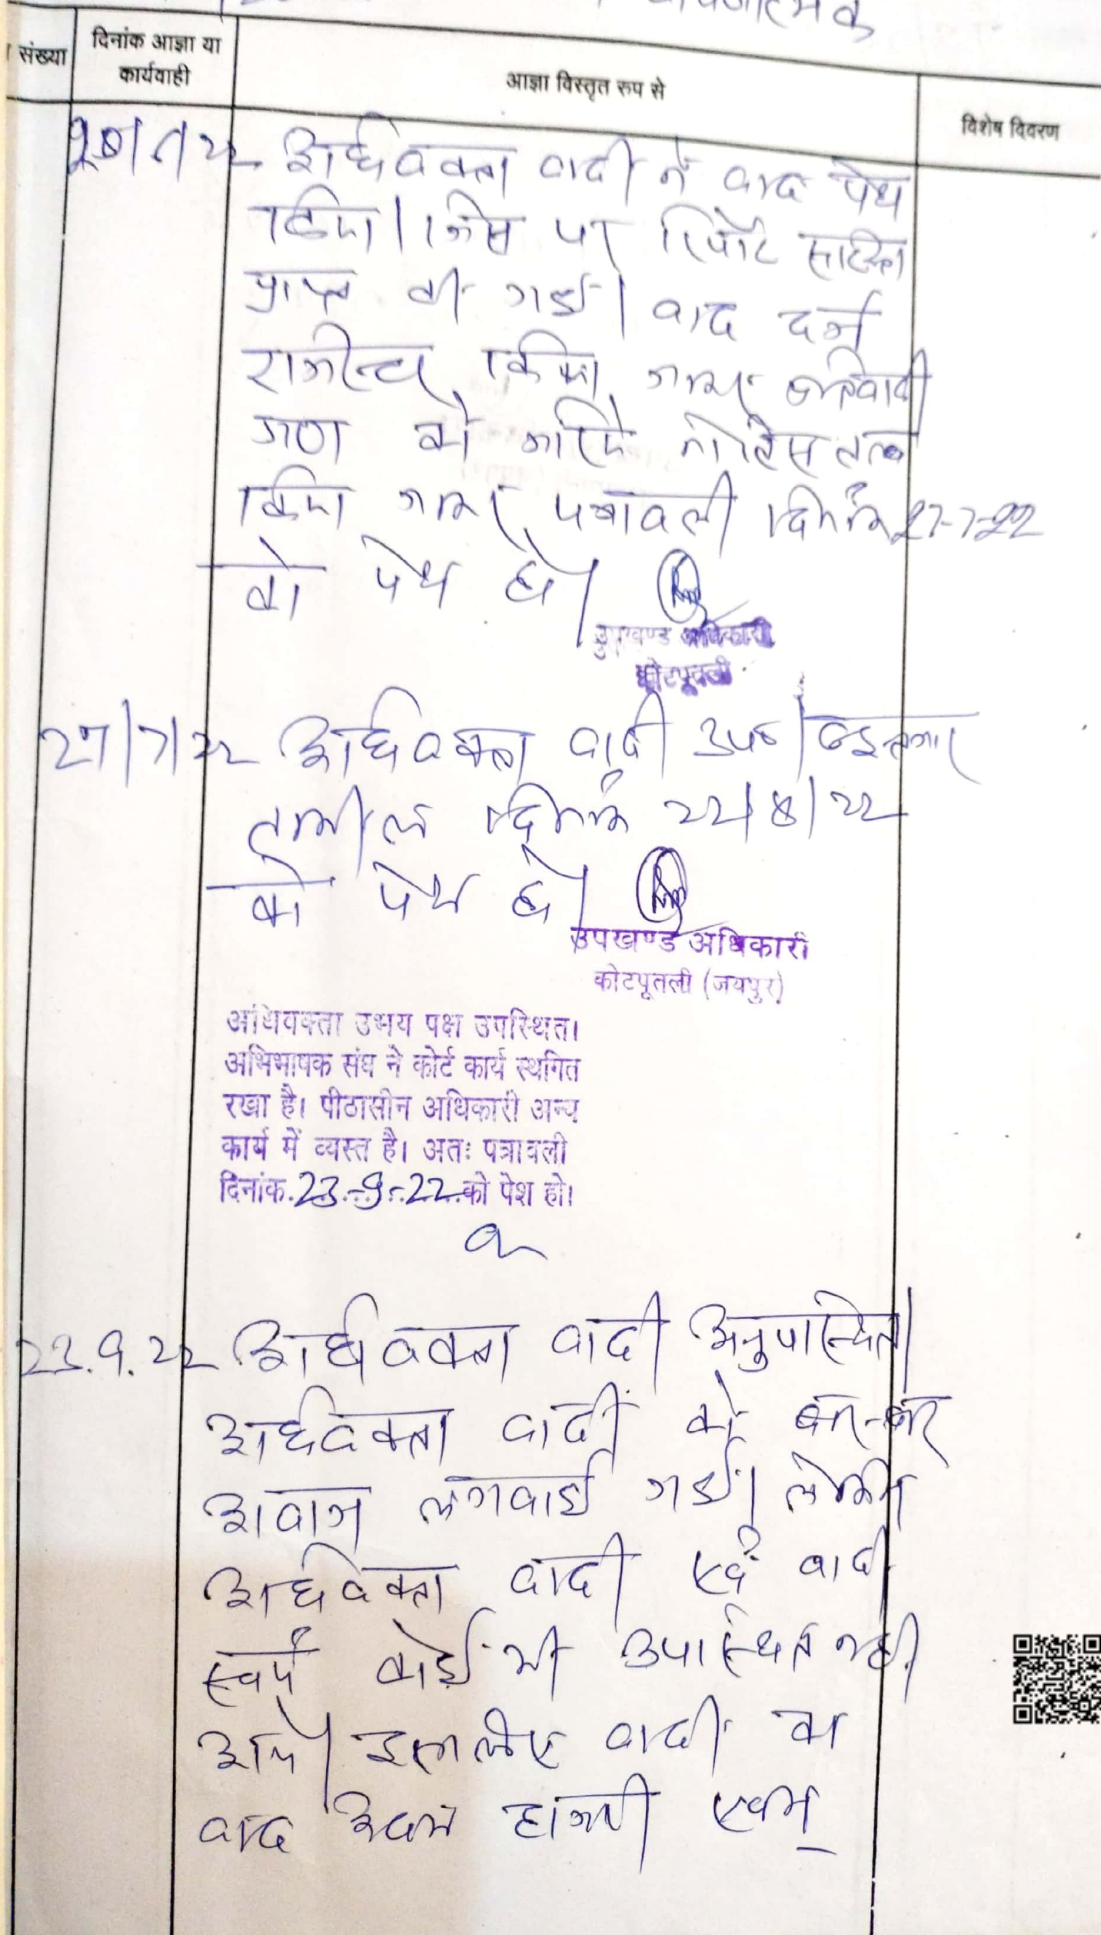 संख्या
दिनांक आज्ञा या
कार्यवाही
आज्ञा विस्तृत रुप से
विशेष विवरण
अधिवक्ता वादी ने वाद पेश
किया। जिस पर रिपोर्ट
प्राप्त की गई। वाद दर्ज
रजिस्टर किया जाकर प्रतिवादी
गण को जरिये नोटिस तलब
किया जाकर पत्रावली दिनांक 27-7-22
को पेश हो।
उपखण्ड अधिकारी
कोटपूतली
27/7/22 अधिवक्ता वादी उप० । इन्तजार
तामील दिनांक 22/8/22
को पेश हो।
उपखण्ड अधिकारी
कोटपूतली (जयपुर)
अधिवक्ता उभय पक्ष उपस्थित।
अभिभाषक संघ ने कोर्ट कार्य स्थगित
रखा है। पीठासीन अधिकारी अन्य
कार्य में व्यस्त है। अतः पत्रावली
दिनांक 23-9-22 को पेश हो।
23.9.22 अधिवक्ता वादी अनुपस्थित।
अधिवक्ता वादी को बार-बार
आवाज लगवाई गई। लेकिन
अधिवक्ता वादी एवं वादी
स्वयं कोई भी उपस्थित नहीं
आये। इसलिए वादी का
वाद अदम हाजरी एवम्